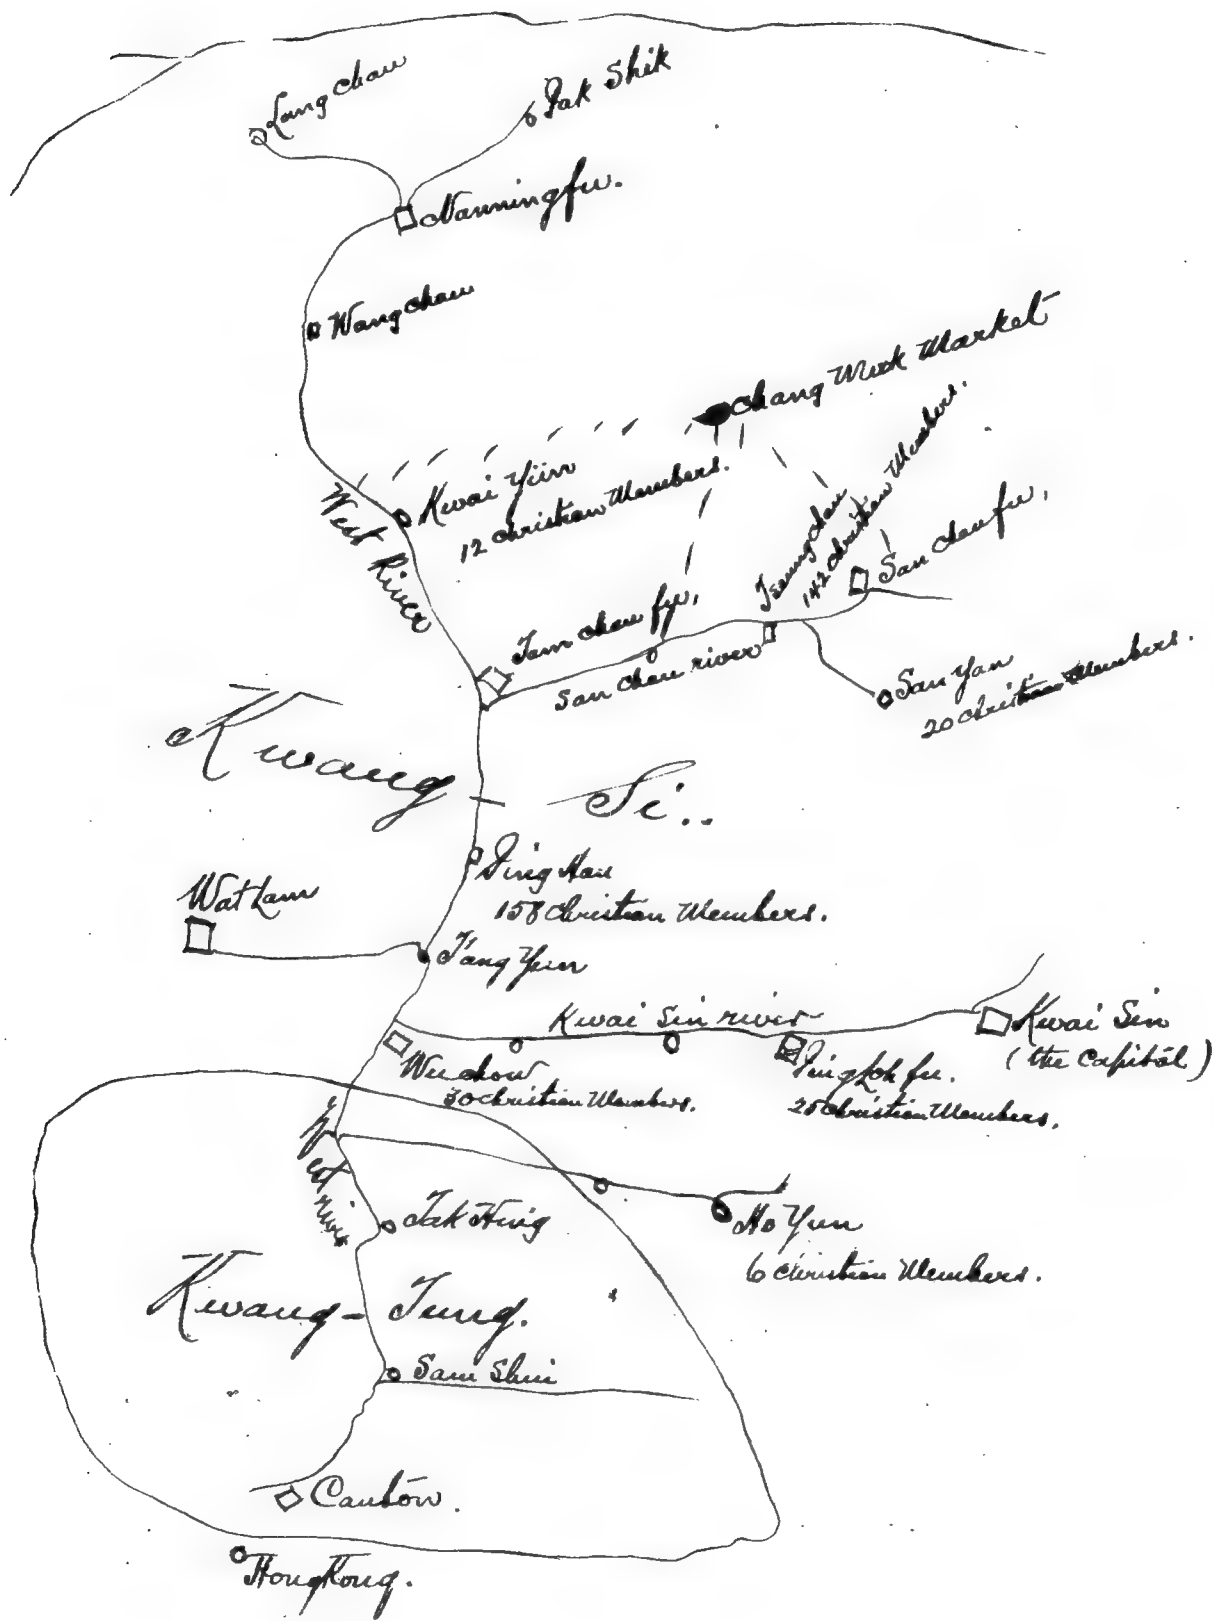 Lungchau
Pak Shik
Nanningfu.
Wangchau
Chang Muk Market
Kwai Yün
12 Christian Members.
West River
Tseungchau
142 Christian Members.
San Chau fu,
Tam chau fu,
San Chau river
San Yan
20 Christian Members.
Kwang - Si..
Ping Nau
158 Christian Members.
Wat Lam
T'ang Yun
Kwai Sin river
Kwai Sin
(the Capitol)
Wuchow
30 Christian Members.
Ping Lok fu.
25 Christian Members.
West river
Tak Hing
Ho Yun
6 Christian Members.
Kwang - Tung.
Sam Shui
Canton.
Hong Kong.